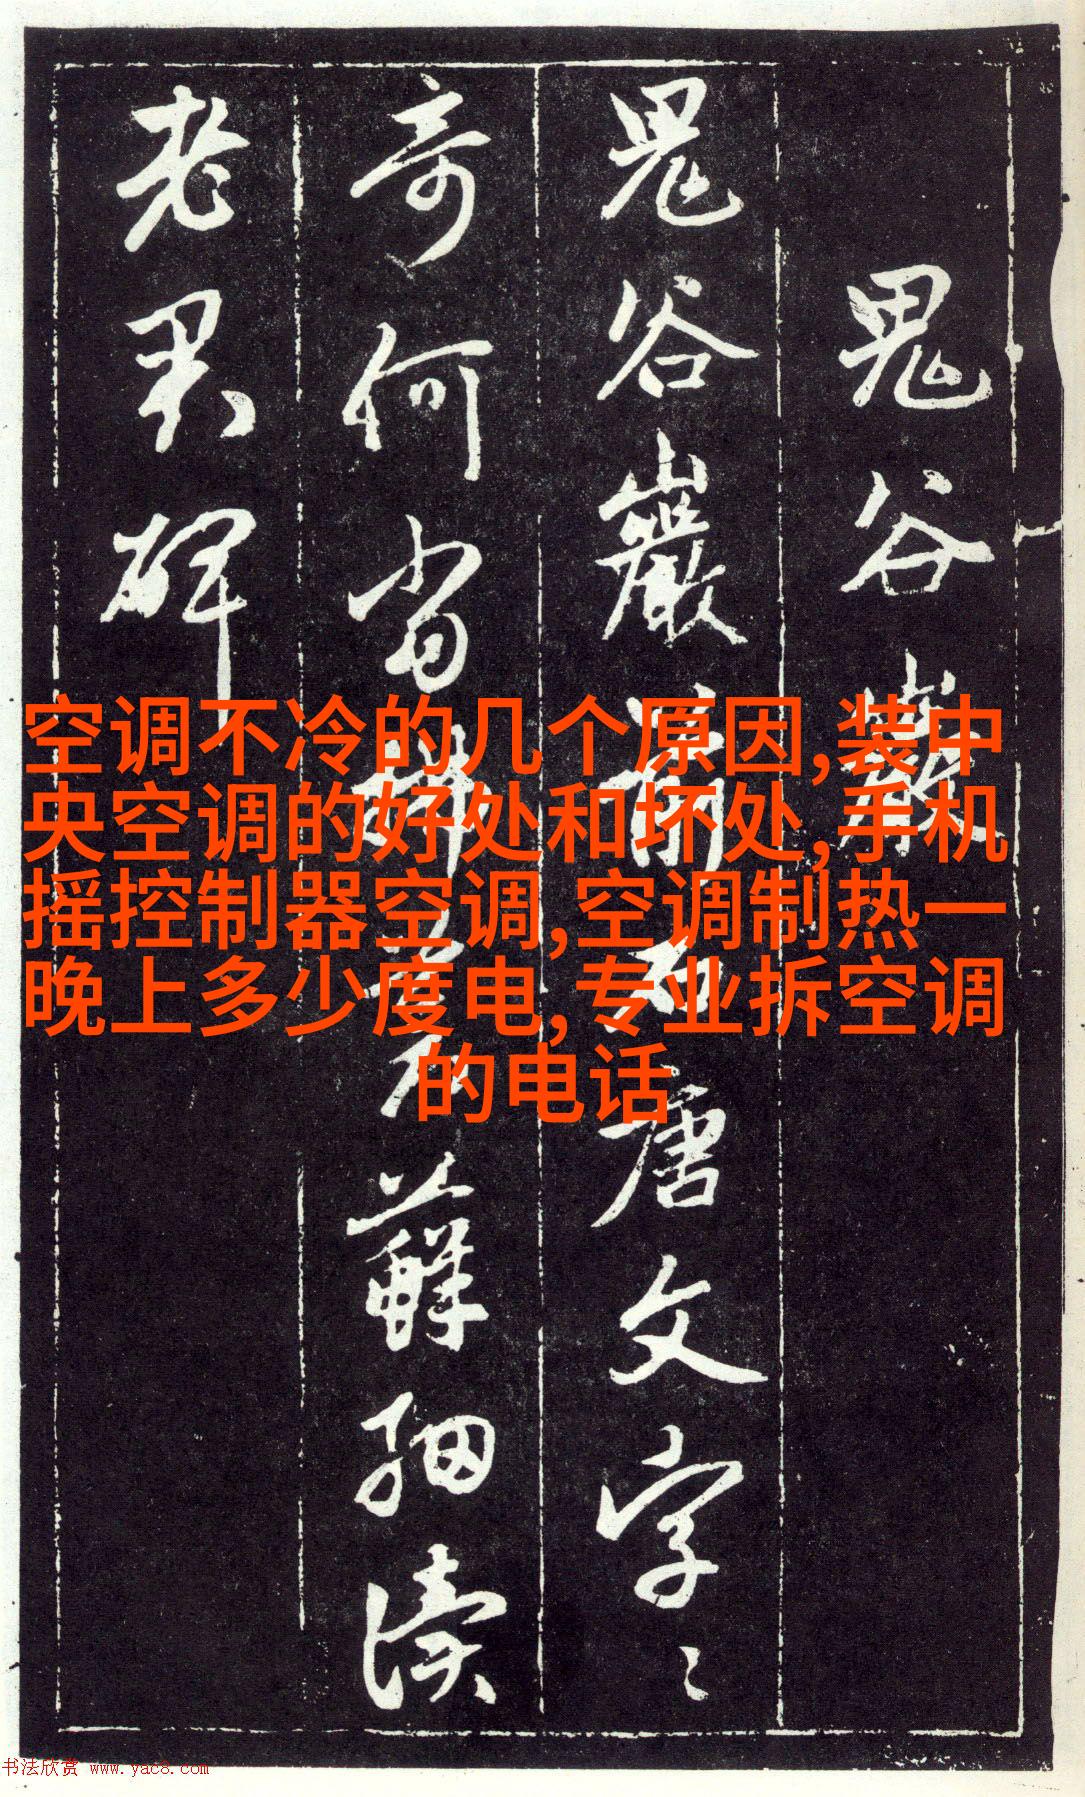 鬼谷巖
鬼谷巖前石唐文字〻
奇何當蒼蘚細讀
老君碑
空调不冷的几个原因,装中
央空调的好处和坏处,手机
摇控制器空调,空调制热一
晚上多少度电,专业拆空调
的电话
书法欣赏 www.yac8.com